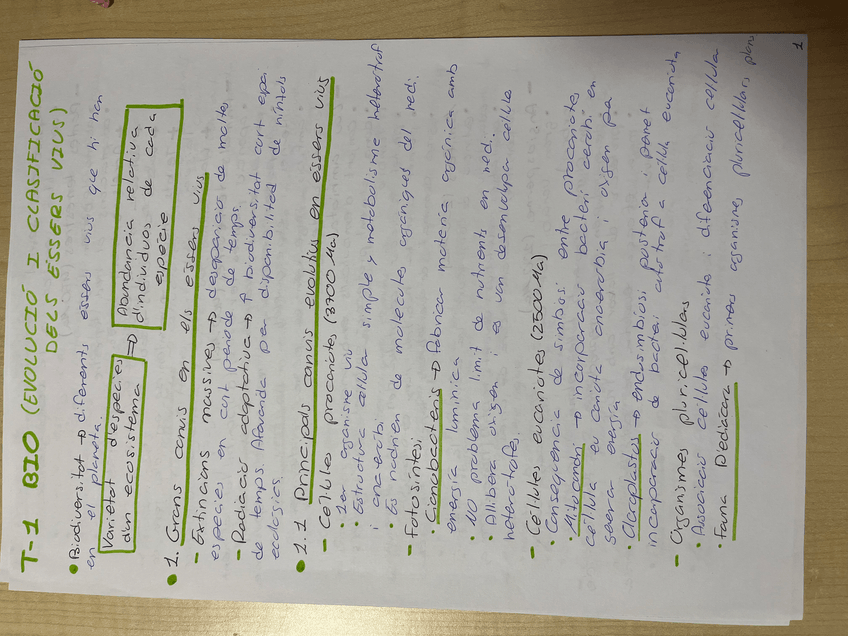 T-1 BIO (EVOLUCIÓ I CLASIFICACIÓ
DELS ESSERS VIUS)
• Biodiversitat → diferents essers vius que hi han
en el planeta.
Varietat d'especies
d'un ecosistema
⇒
Abundancia relativa
d'individuos de cada
especie
• 1. Grans canvis en els essers vius
- Extincions massives → desaparicio de moltes
especies en curt periode de temps.
- Radiació adaptativa → ↑ Biodiversitat curt epai
de temps. Afavorida per disponibilitad de nínxols
ecologics.
• 1.1 Principals canvis evolutius en essers vius
- Celules procariotes (3700 Ma)
• 1er organisme viu
• Estructura cellula simple y metabolisme heterotrof
i anaerobi.
• Es nodrien de molecules organiques del medi.
- Fotosintesi
• Cianobacteris → fabricar materia orgánica amb
energia luminica
• NO problema limit de nutrients en medi.
• Allibera oxigen i es van desenvolupar cellula
heterotrofes.
- Cèl·lules eucariotes (2500 Ma)
• Consequencia de simbiosi entre procariotes
• Mitocondri → incorporacio bacteri aerobi en
cèllula eu cariota anaerobia i oxigen pa
energia
• Cloroplastos → endosimbiosi posteria i permet
incorporacio de bacteri autotrof a celula eucariota
- Organismes pluricelulas
• Associació cellules eucariota i diferenciacio cellula
• Fauna D'ediacara → primers organismes pluricellulars
1